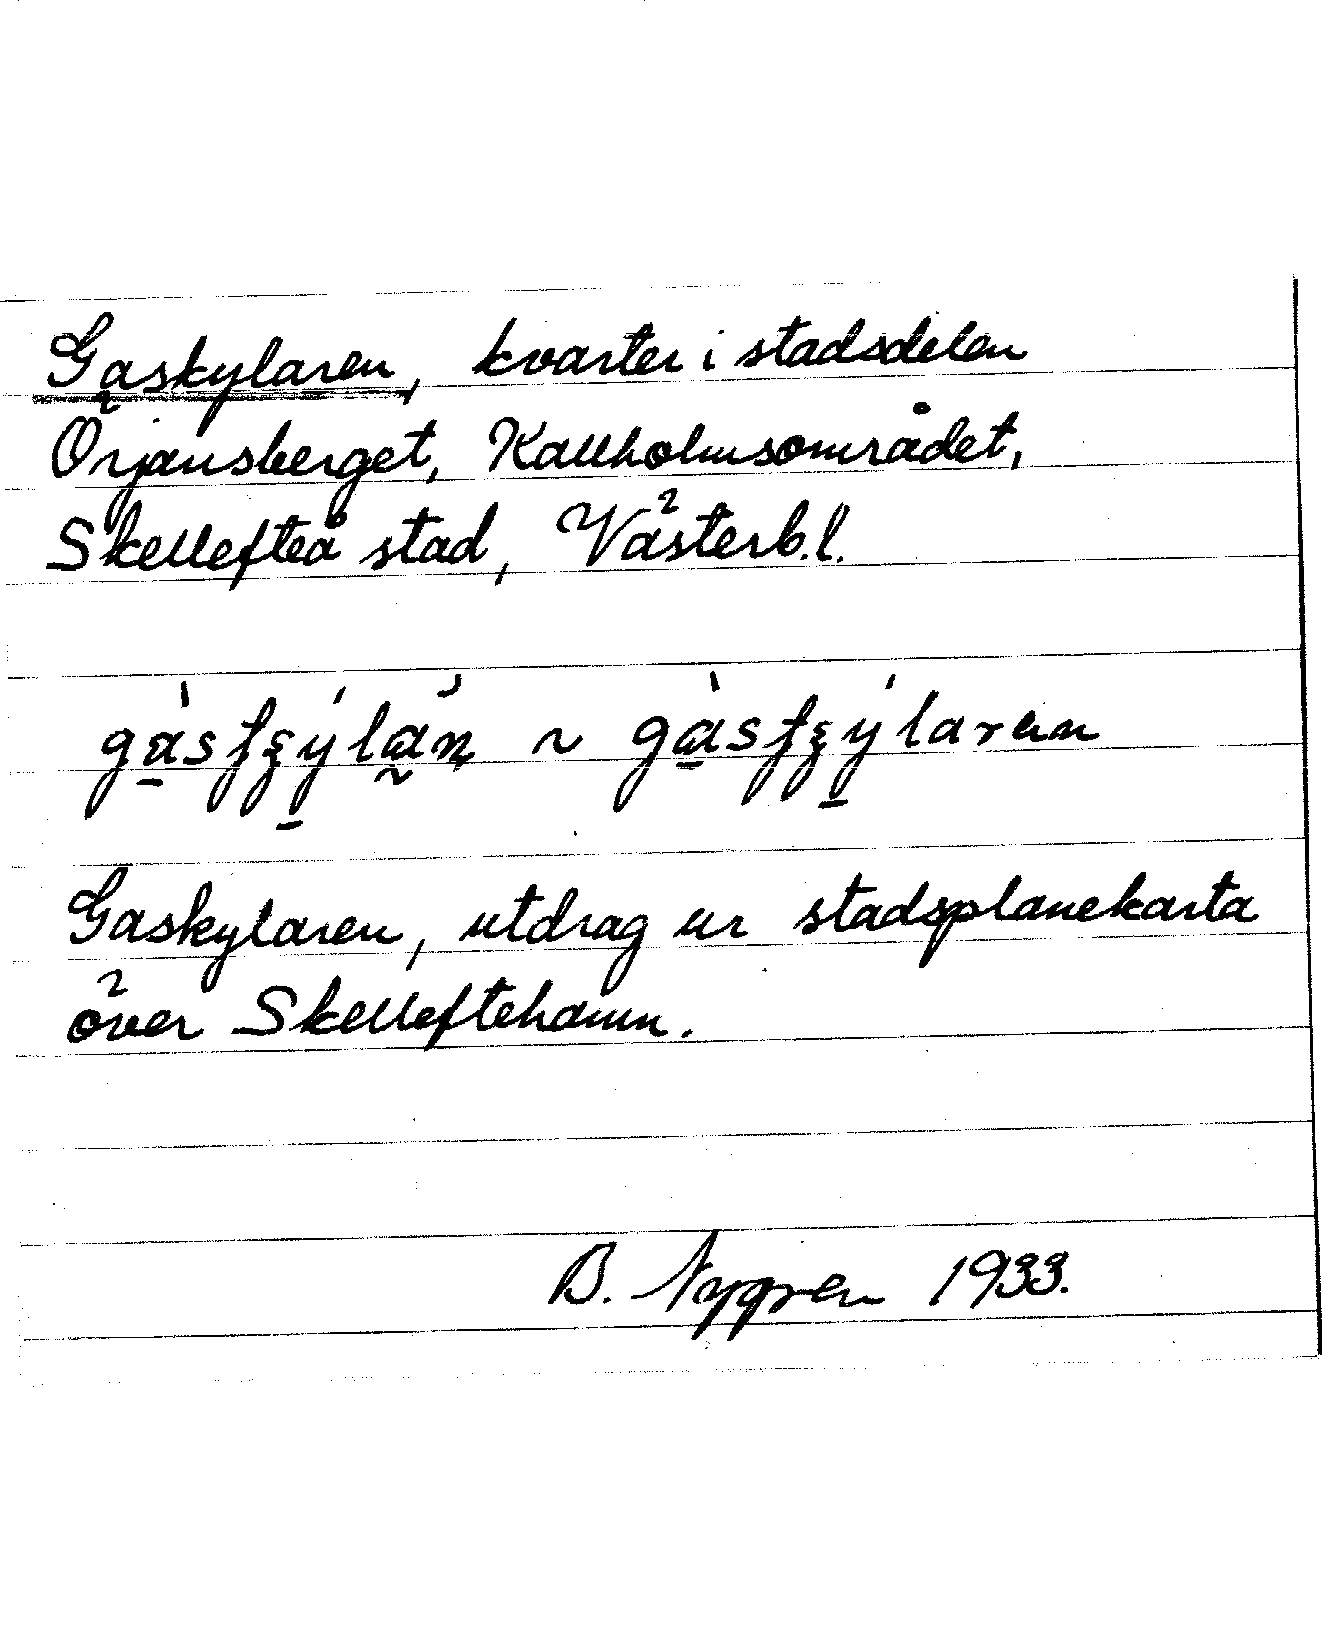 Gaskylaren, kvarter i stadsdelen
Örjansberget, Kallholmsområdet,
Skellefteå stad, Västerb.l.
~
Gaskylaren, utdrag ur stadsplanekarta
över Skelleftehamn.
B. Nygren 1933.